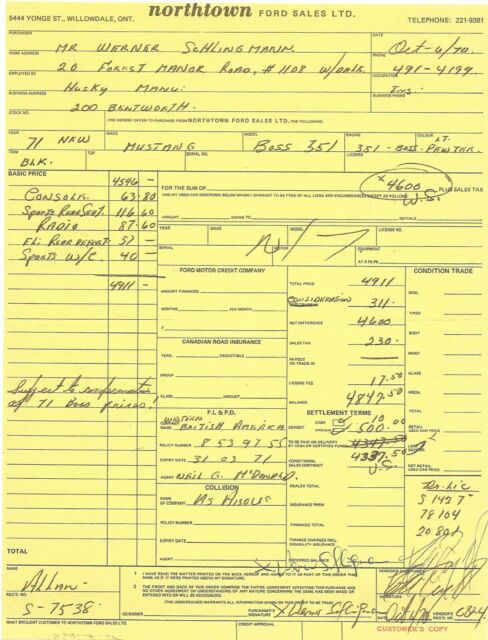 northtown FORD SALES LTD.
5444 YONGE ST., WILLOWDALE, ONT.
TELEPHONE: 221-9381
PURCHASER
MR WERNER SCHLINGMANN
DATE
Oct-6/70
HOME ADDRESS
20 FOREST MANOR ROAD, #1108 W/DALE
PHONE
491-4199
EMPLOYED BY
HUSKY MANU:
OCCUPATION
Ins:
BUSINESS ADDRESS
200 BENTWORTH.
BUSINESS PHONE
STOCK NO.
I/WE HEREBY OFFER TO PURCHASE FROM NORTHTOWN FORD SALES LTD. THE FOLLOWING
YEAR
71 NEW
MAKE
MUSTANG
MODEL
BOSS 351
ENGINE
351-BOSS
COLOUR
LT. PEWTER
TRIM
BLK.
TOP
SERIAL NO.
LICENSE
BASIC PRICE
4546 -
CONSOLE 63.80
SPORTS REAR SEAT. 116.60
RADIO 87.60
ELE REAR DEFOST 57 -
SPORTS W/C 40 -
4911 -
FOR THE SUM OF
x 4600 U.S.
PLUS SALES TAX
AND MY USED CAR DESCRIBED BELOW WHICH I WARRANT TO BE FREE OF ALL LIENS AND ENCUMBRANCES EXCEPT AS FOLLOWS
AMOUNT
OWING TO
INITIALS
YEAR
MAKE
MODEL
LICENSE NO.
SERIAL
MOTOR
EQUIPMENT
N/T
FORD MOTOR CREDIT COMPANY
AMOUNT FINANCED
MONTHS
PER MONTH
$
CANADIAN ROAD INSURANCE
TERM
DEDUCTIBLE
GROUP
CLASS
AMOUNT
TOTAL PRICE 4911
CONSIDERATION 311.
NET DIFFERENCE 4600
SALES TAX 230.
PAYOUT ON TRADE IN
LICENSE FEE 17.50
BALANCE 4847.50
CONDITION TRADE
MISC.
TIRES
BODY
PAINT
GLASS
MECH.
TOTAL
RETAIL USED CAR PRICE
LESS RECOND.
NET RETAIL USED CAR PRICE
Subject to confirmation
of 71 Boss prices!
P.L & P.D.
COMPANY
WESTERN BRITISH AMERICA
POLICY NUMBER 8 53 97 55
EXPIRY DATE 31 03 71
AGENT NEIL G. McDONALD.
SETTLEMENT TERMS
DEPOSIT
CASH 10 00
CHEQUE 500.00
TO BE PAID ON DELIVERY BY CASH OR CERTIFIED FUNDS
4347.50
CONDITIONAL SALES CONTRACT
4337.50
U.S.
COLLISION
NAME OF COMPANY AS ABOVE
POLICY NUMBER
EXPIRY DATE
AGENT
DEALER TOTAL
INSURANCE PREM
FINANCED TOTAL
FINANCE CHARGES INCL. INSURANCE
DEFERRED BALANCE
DR. LIC
S 1427
78104
TOTAL
NAME
Allan
REG'D. NO.
S-7538.
1 I HAVE READ THE MATTER PRINTED ON THE BACK HEREOF AND AGREE TO IT AS PART OF THIS ORDER THE SAME AS IF IT WERE PRINTED ABOVE MY SIGNATURE.
2 THE FRONT AND BACK OF THIS ORDER COMPRISE THE ENTIRE AGREEMENT AFFECTING THIS PURCHASE AND NO OTHER AGREEMENT OR UNDERSTANDING OF ANY NATURE CONCERNING THE SAME HAS BEEN MADE OR ENTERED INTO OR WILL BE RECOGNIZED.
COSIGNER
PURCHASER'S SIGNATURE
VENDOR'S ACCEPTANCE
SIGNATURE
VENDOR'S REG'D. NO.
WHAT BROUGHT CUSTOMER TO NORTHTOWN FORD SALES LTD.
CREDIT APPROVAL
CUSTOMER'S COPY